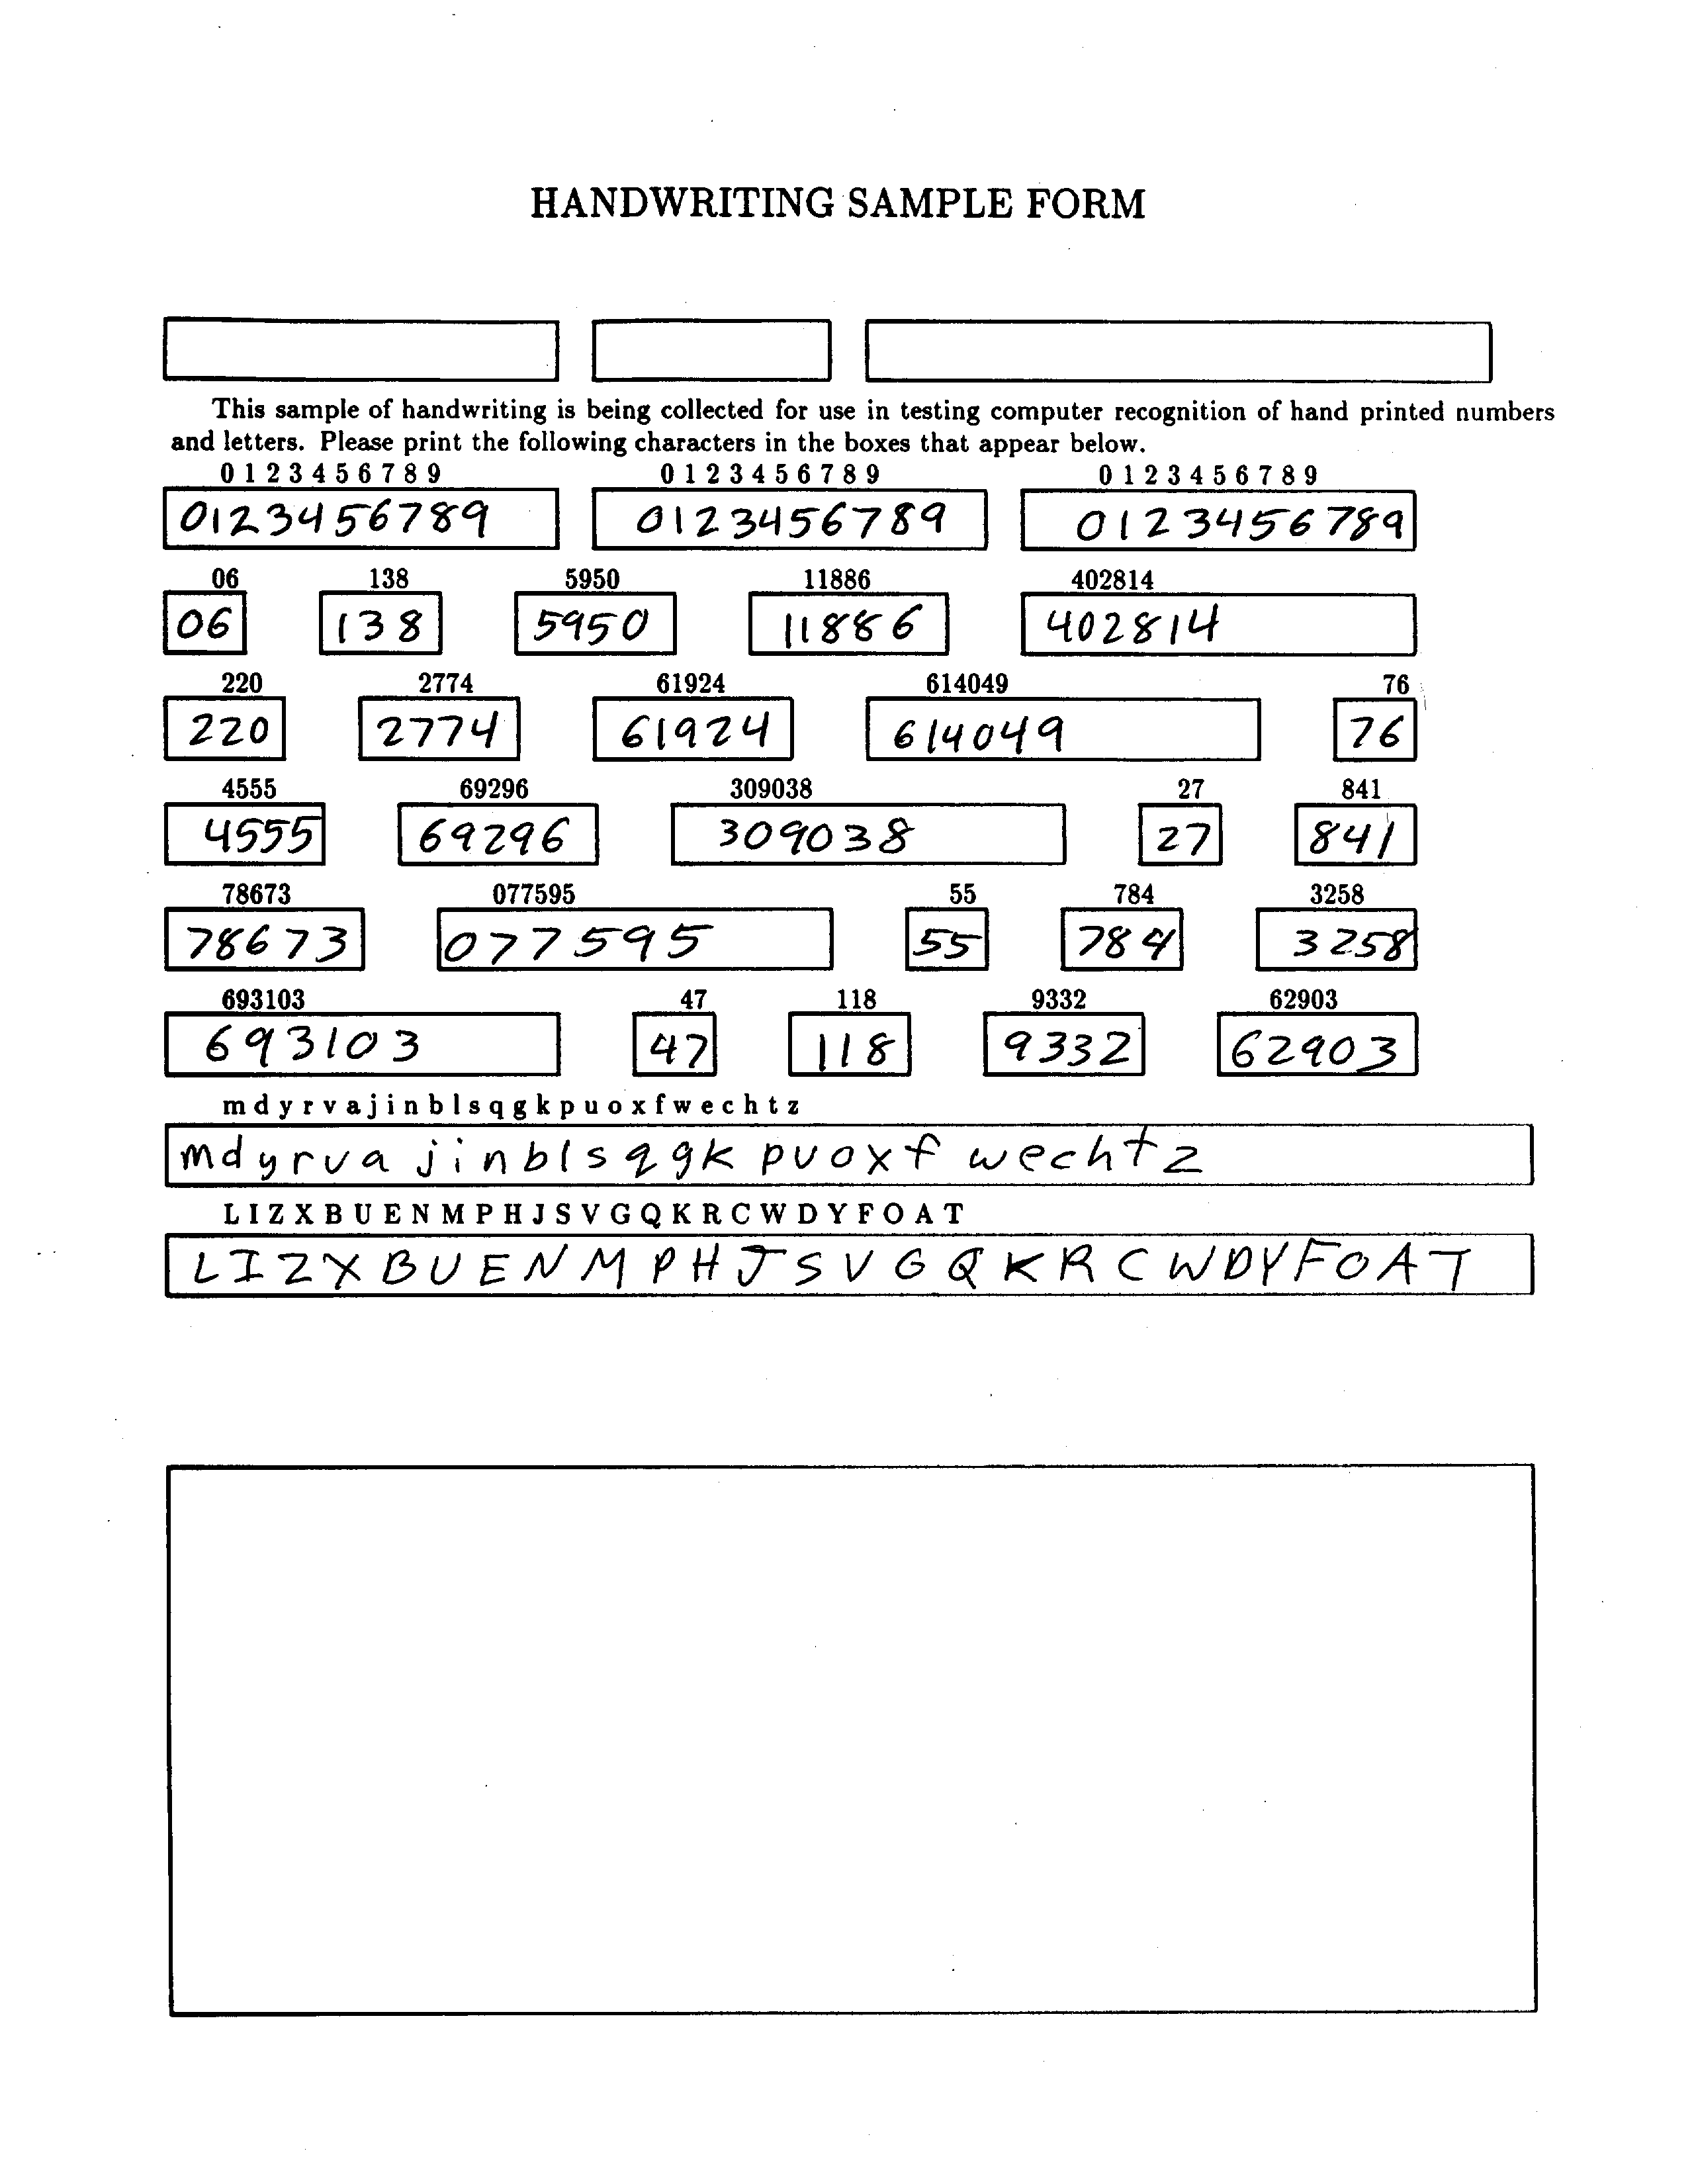 HANDWRITING SAMPLE FORM
This sample of handwriting is being collected for use in testing computer recognition of hand printed numbers
and letters. Please print the following characters in the boxes that appear below.
0 1 2 3 4 5 6 7 8 9 0 1 2 3 4 5 6 7 8 9 0 1 2 3 4 5 6 7 8 9
0123456789 0123456789 0123456789
06 138 5950 11886 402814
06 138 5950 11886 402814
220 2774 61924 614049 76
220 2774 61924 614049 76
4555 69296 309038 27 841
4555 69296 309038 27 841
78673 077595 55 784 3258
78673 077595 55 784 3258
693103 47 118 9332 62903
693103 47 118 9332 62903
m d y r v a j i n b l s q g k p u o x f w e c h t z
m d y r v a j i n b l s q g k p u o x f w e c h t z
L I Z X B U E N M P H J S V G Q K R C W D Y F O A T
L I Z X B U E N M P H J S V G Q K R C W D Y F O A T